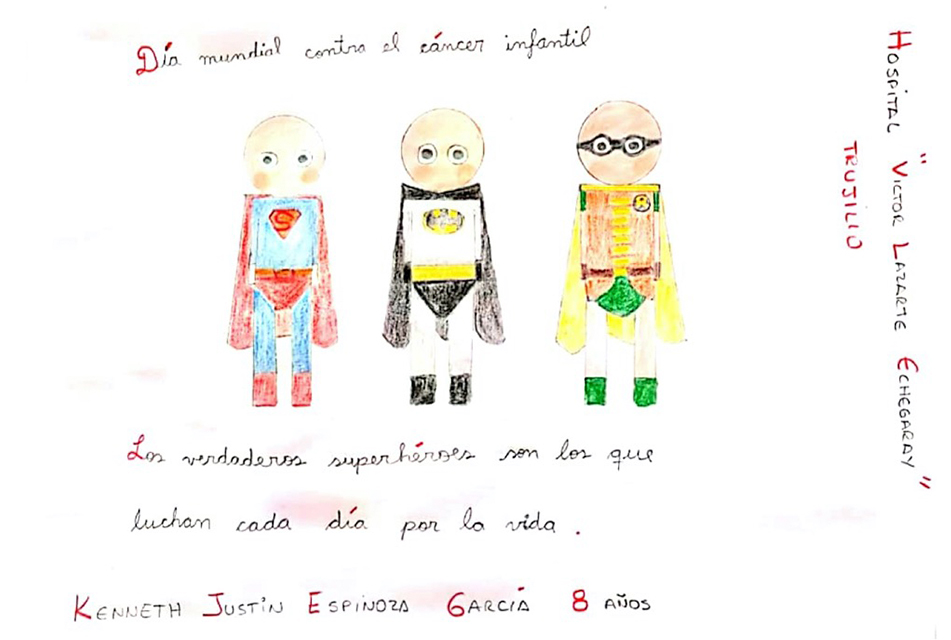 Día mundial contra el cáncer infantil
S
Los verdaderos superhéroes son los que
luchan cada día por la vida.
KENNETH JUSTIN ESPINOZA GARCIA 8 AÑOS
HOSPITAL "VICTOR LAZARTE ECHEGARAY"
TRUJILLO